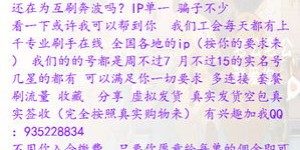 还在为互刷奔波吗？IP单一 骗子不少
看一下或许我可以帮到你 我们工会每天都有上
千专业刷手在线 全国各地的ip（按你的要求来
） 我们的的号都是周不过7 月不过15的实名号
几星的都有 可以满足你一切要求 多连接 套餐
刷流量 收藏 分享 虚拟发货 真实发货空包真
实签收（完全按照真实购物来） 有兴趣加我QQ
：935228834
不用你入会缴费 只要你愿意给每单的佣金即可